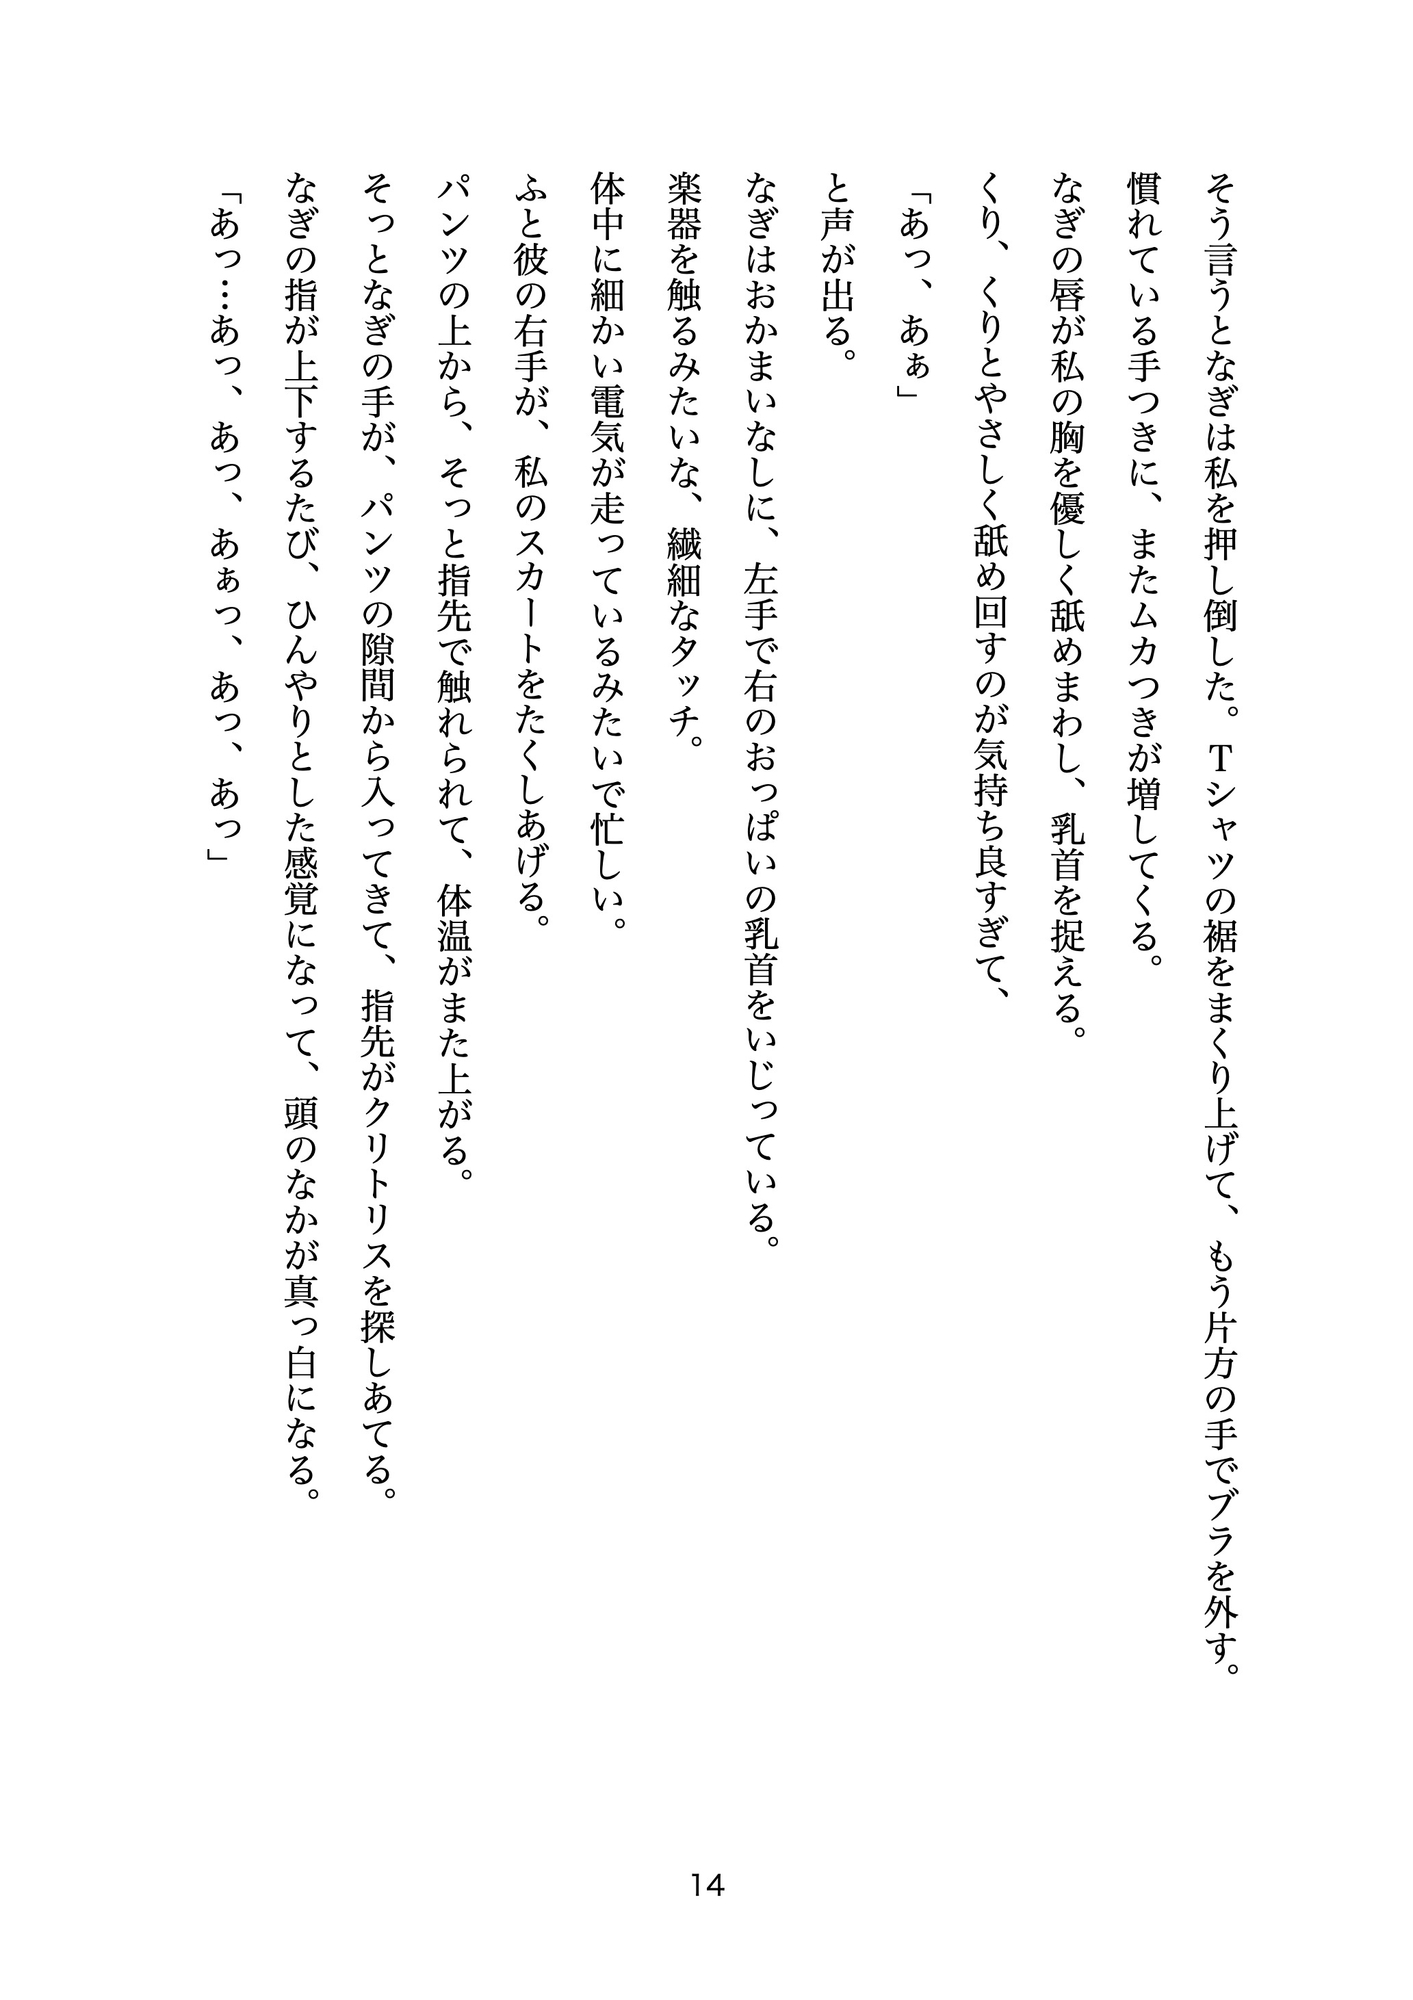 そう言うとなぎは私を押し倒した。Tシャツの裾をまくり上げて、もう片方の手でブラを外す。
慣れている手つきに、またムカつきが増してくる。
なぎの唇が私の胸を優しく舐めまわし、乳首を捉える。
くり、くりとやさしく舐め回すのが気持ち良すぎて、
「あっ、あぁ」
と声が出る。
なぎはおかまいなしに、左手で右のおっぱいの乳首をいじっている。
楽器を触るみたいな、繊細なタッチ。
体中に細かい電気が走っているみたいで忙しい。
ふと彼の右手が、私のスカートをたくしあげる。
パンツの上から、そっと指先で触れられて、体温がまた上がる。
そっとなぎの手が、パンツの隙間から入ってきて、指先がクリトリスを探しあてる。
なぎの指が上下するたび、ひんやりとした感覚になって、頭のなかが真っ白になる。
「あっ…あっ、あっ、あぁっ、あっ、あっ」
14